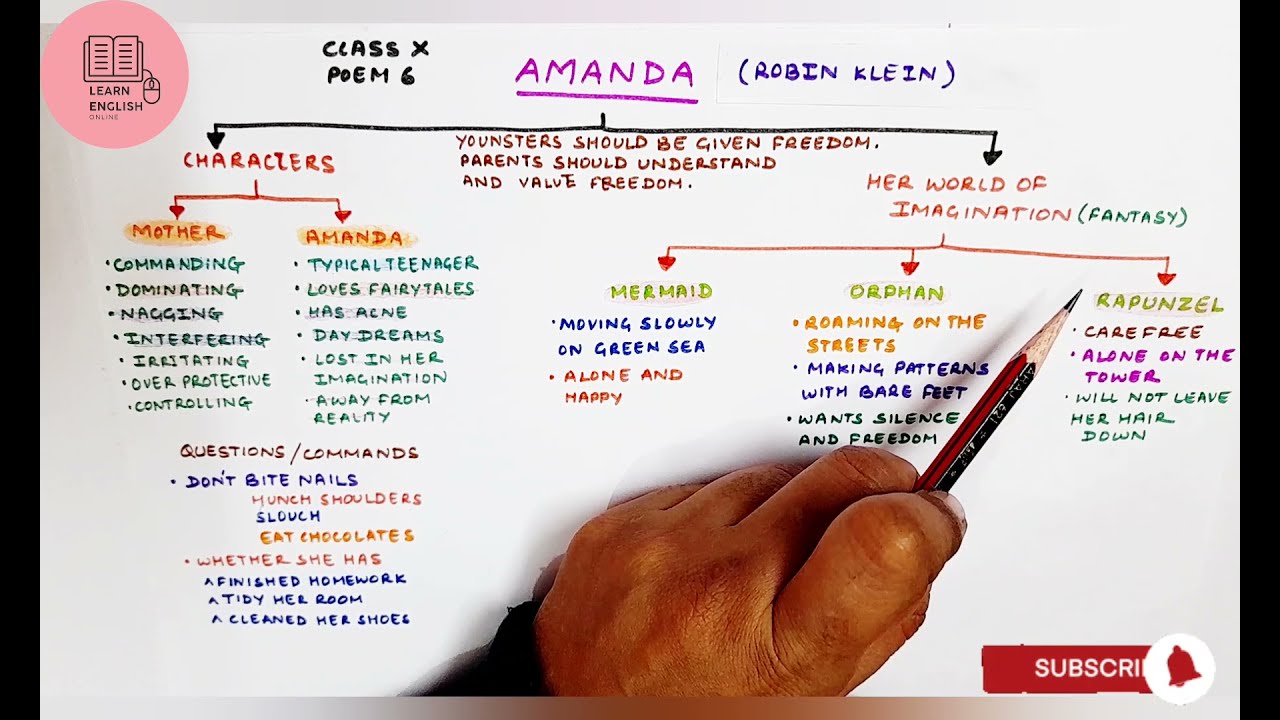 LEARN
ENGLISH
ONLINE
CLASS X
POEM 6
AMANDA (ROBIN KLEIN)
YOUNSTERS SHOULD BE GIVEN FREEDOM.
PARENTS SHOULD UNDERSTAND
AND VALUE FREEDOM.
CHARACTERS
MOTHER
• COMMANDING
• DOMINATING
• NAGGING
• INTERFERING
• IRRITATING
• OVER PROTECTIVE
• CONTROLLING
AMANDA
• TYPICAL TEENAGER
• LOVES FAIRYTALES
• HAS ACNE
• DAY DREAMS
• LOST IN HER
IMAGINATION
• AWAY FROM
REALITY
QUESTIONS/COMMANDS
• DON'T BITE NAILS
HUNCH SHOULDERS
SLOUCH
EAT CHOCOLATES
• WHETHER SHE HAS
^ FINISHED HOMEWORK
^ TIDY HER ROOM
^ CLEANED HER SHOES
HER WORLD OF
IMAGINATION (FANTASY)
MERMAID
• MOVING SLOWLY
ON GREEN SEA
• ALONE AND
HAPPY
ORPHAN
• ROAMING ON THE
STREETS
• MAKING PATTERNS
WITH BARE FEET
• WANTS SILENCE
AND FREEDOM
RAPUNZEL
• CAREFREE
• ALONE ON THE
TOWER
• WILL NOT LEAVE
HER HAIR
DOWN
SUBSCRI